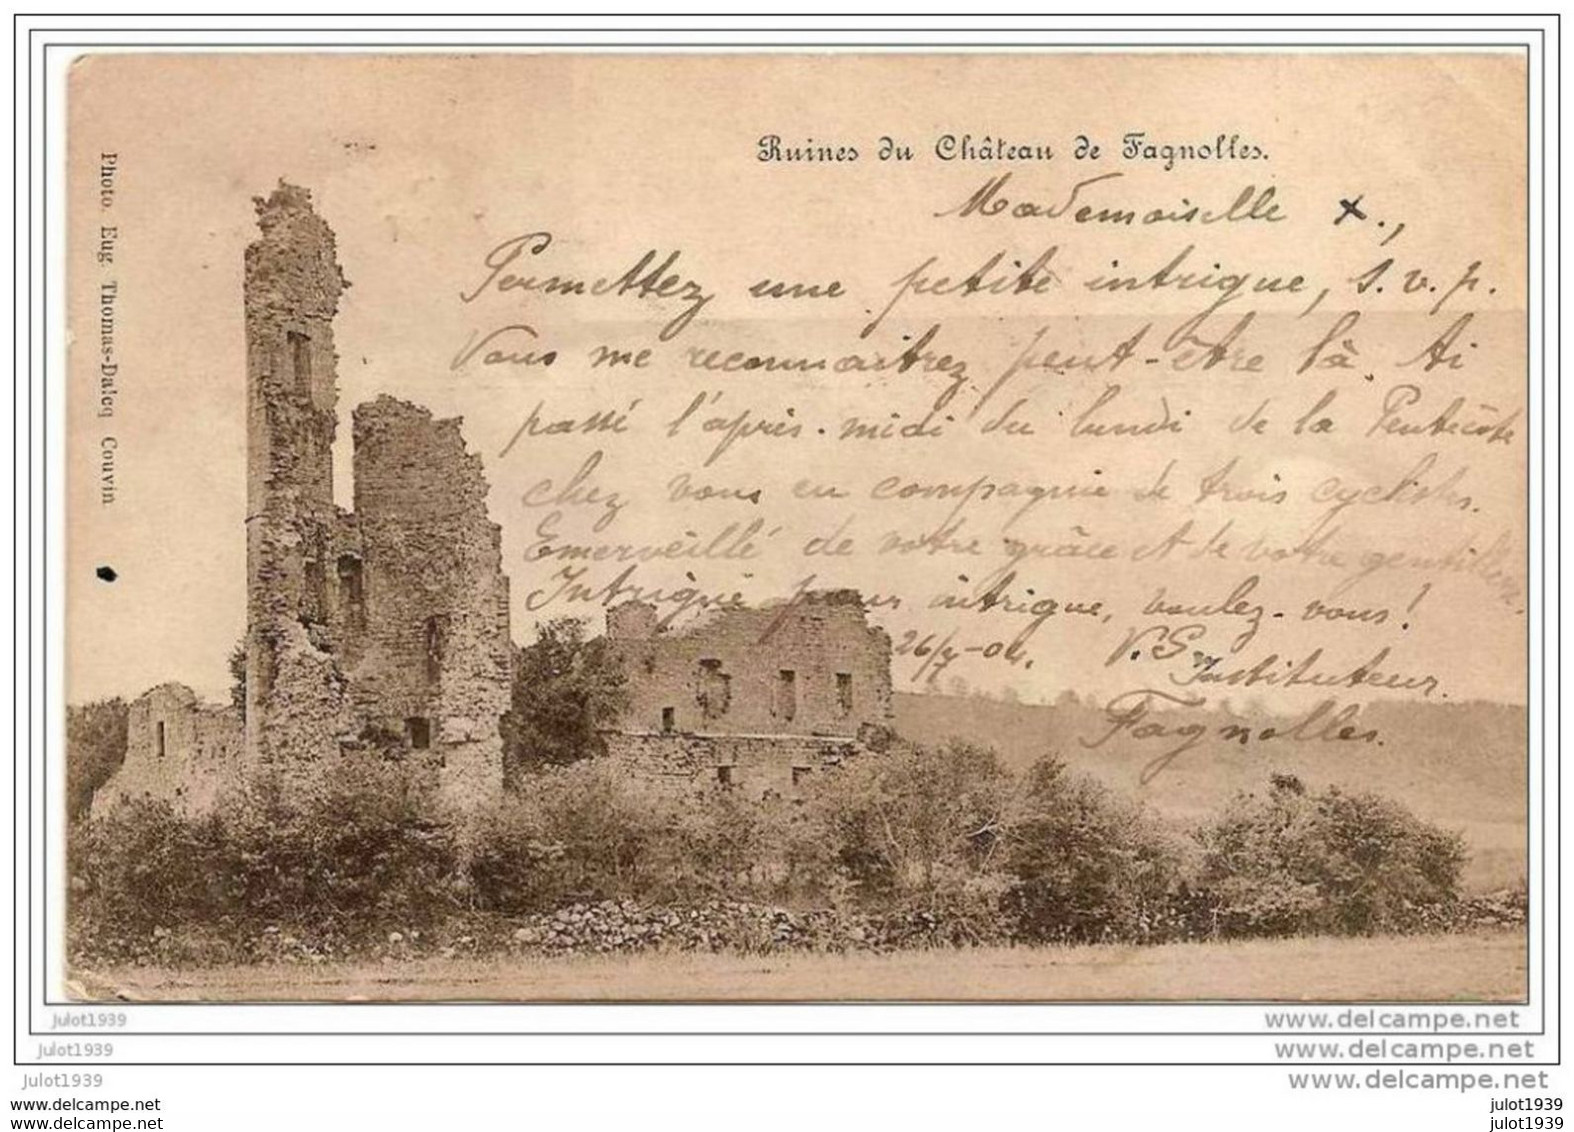 Ruines du Château de Fagnolles.
Photo. Eug. Thomas-Dalcq Couvin
Mademoiselle X.,
Permettez une petite intrigue, s.v.p.
Vous me reconnaitrez peut-être là. Ai
passé l'après-midi du lundi de la Pentecôte
chez vous en compagnie de trois cyclistes.
Emerveillé de votre grâce et de votre gentillesse.
Intrigue pour intrigue, voulez-vous!
V. S.
Instituteur.
Fagnolles.
julot1939
www.delcampe.net
julot1939
www.delcampe.net
julot1939
www.delcampe.net
www.delcampe.net
julot1939
www.delcampe.net
julot1939